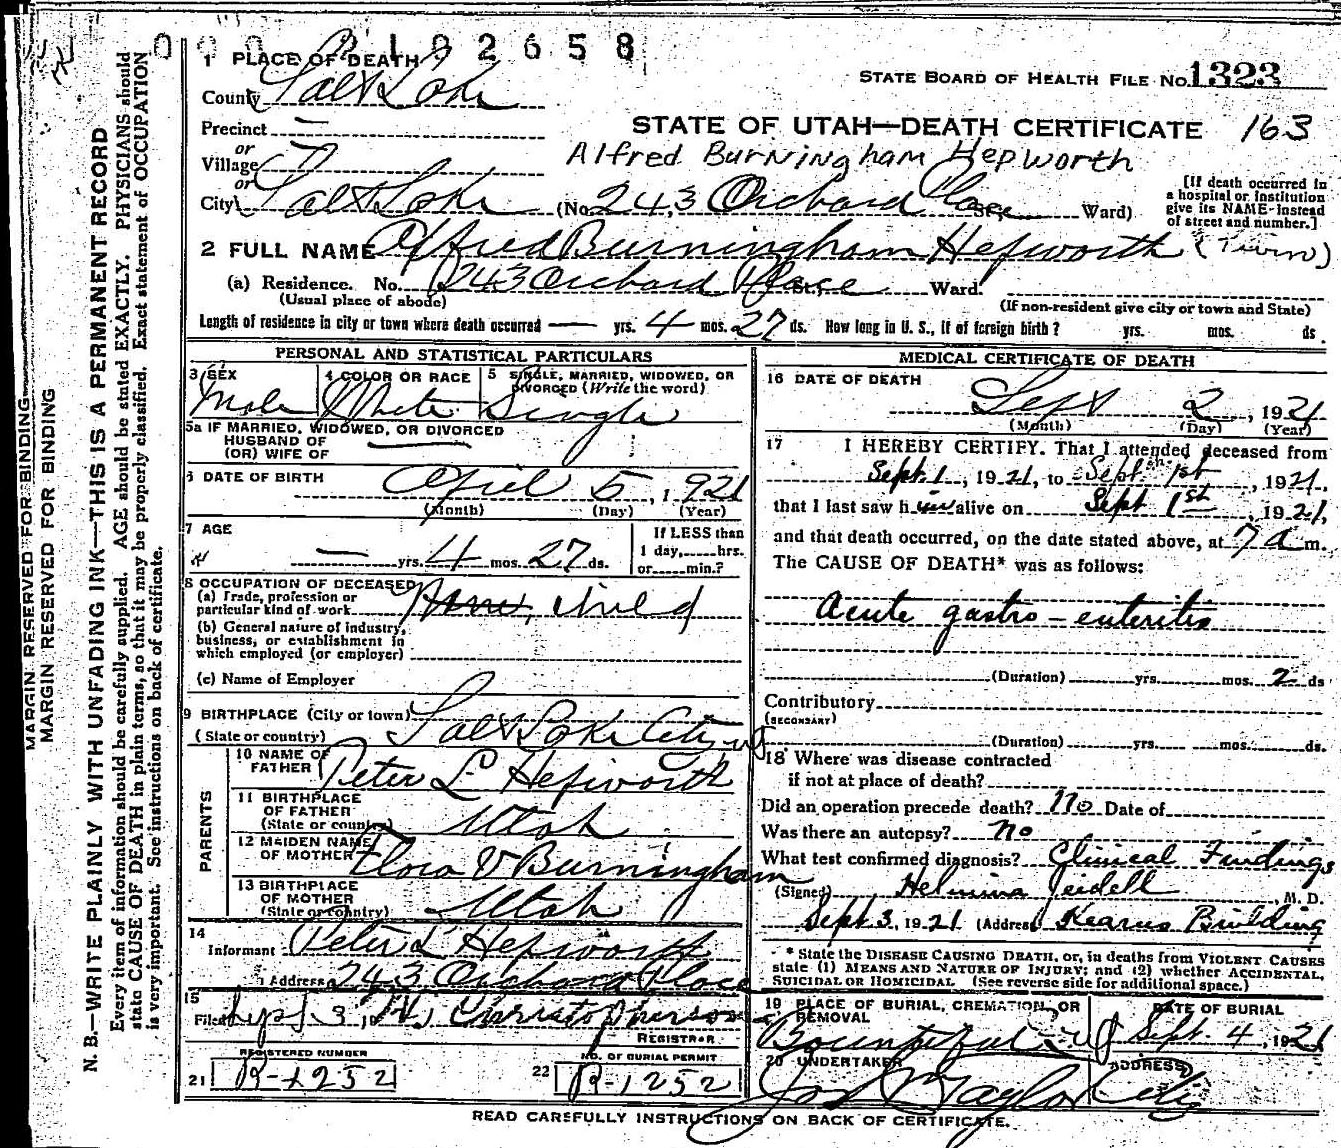 0 0 0 1 9 2 6 5 8
1 PLACE OF DEATH
STATE BOARD OF HEALTH FILE No. 1323
County Salt Lake
Precinct —
STATE OF UTAH—DEATH CERTIFICATE 163
or
Village
Alfred Burningham Hepworth
or
City Salt Lake (No. 243 Orchard Place St., Ward)
[If death occurred in a hospital or institution give its NAME instead of street and number.]
2 FULL NAME Alfred Burningham Hepworth (Twin)
(a) Residence. No. 243 Orchard Place St., Ward.
(Usual place of abode) (If non-resident give city or town and State)
Length of residence in city or town where death occurred — yrs. 4 mos. 27 ds. How long in U. S., if of foreign birth? yrs. mos. ds.
PERSONAL AND STATISTICAL PARTICULARS
3 SEX
Male
4 COLOR OR RACE
White
5 SINGLE, MARRIED, WIDOWED, OR DIVORCED (Write the word)
Single
5a IF MARRIED, WIDOWED, OR DIVORCED
HUSBAND OF
(OR) WIFE OF —
6 DATE OF BIRTH April 5, 1921
(Month) (Day) (Year)
7 AGE
— yrs. 4 mos. 27 ds.
If LESS than
1 day,.....hrs.
or.....min.?
8 OCCUPATION OF DECEASED
(a) Trade, profession or
particular kind of work None, child
(b) General nature of industry,
business, or establishment in
which employed (or employer)
(c) Name of Employer
9 BIRTHPLACE (City or town)
(State or country) Salt Lake City U
PARENTS
10 NAME OF
FATHER Peter L Hepworth
11 BIRTHPLACE
OF FATHER
(State or country) Utah
12 MAIDEN NAME
OF MOTHER Flora V Burningham
13 BIRTHPLACE
OF MOTHER
(State or country) Utah
14
Informant Peter L Hepworth
Address 243 Orchard Place
15
Filed 3, 19
REGISTRAR
REGISTERED NUMBER
21 R-1252
NO. OF BURIAL PERMIT
22 R-1252
MEDICAL CERTIFICATE OF DEATH
16 DATE OF DEATH
Sept 2, 1921
(Month) (Day) (Year)
17 I HEREBY CERTIFY. That I attended deceased from
Sept. 1, 1921, to Sept. 1st, 1921,
that I last saw him alive on Sept 1st, 1921,
and that death occurred, on the date stated above, at 7 a m.
The CAUSE OF DEATH* was as follows:
Acute gastro-enteritis
(Duration) yrs. mos. 2 ds
Contributory
(SECONDARY)
(Duration) yrs. mos. ds.
18 Where was disease contracted
if not at place of death?
Did an operation precede death? no Date of
Was there an autopsy? no
What test confirmed diagnosis? Clinical Findings
(Signed) M. D.
Sept 3, 1921 (Address) Kearns Building
* State the DISEASE CAUSING DEATH, or, in deaths from VIOLENT CAUSES
state (1) MEANS AND NATURE OF INJURY; and (2) whether ACCIDENTAL,
SUICIDAL OR HOMICIDAL (See reverse side for additional space.)
19 PLACE OF BURIAL, CREMATION, OR
REMOVAL
Bountiful
DATE OF BURIAL
Sept. 4, 1921
20 UNDERTAKER
Taylor
ADDRESS
City
READ CAREFULLY INSTRUCTIONS ON BACK OF CERTIFICATE.
MARGIN RESERVED FOR BINDING
MARGIN RESERVED FOR BINDING
N. B.—WRITE PLAINLY WITH UNFADING INK—THIS IS A PERMANENT RECORD
Every item of information should be carefully supplied. AGE should be stated EXACTLY. PHYSICIANS should
state CAUSE OF DEATH in plain terms, so that it may be properly classified. Exact statement of OCCUPATION
is very important. See instructions on back of certificate.